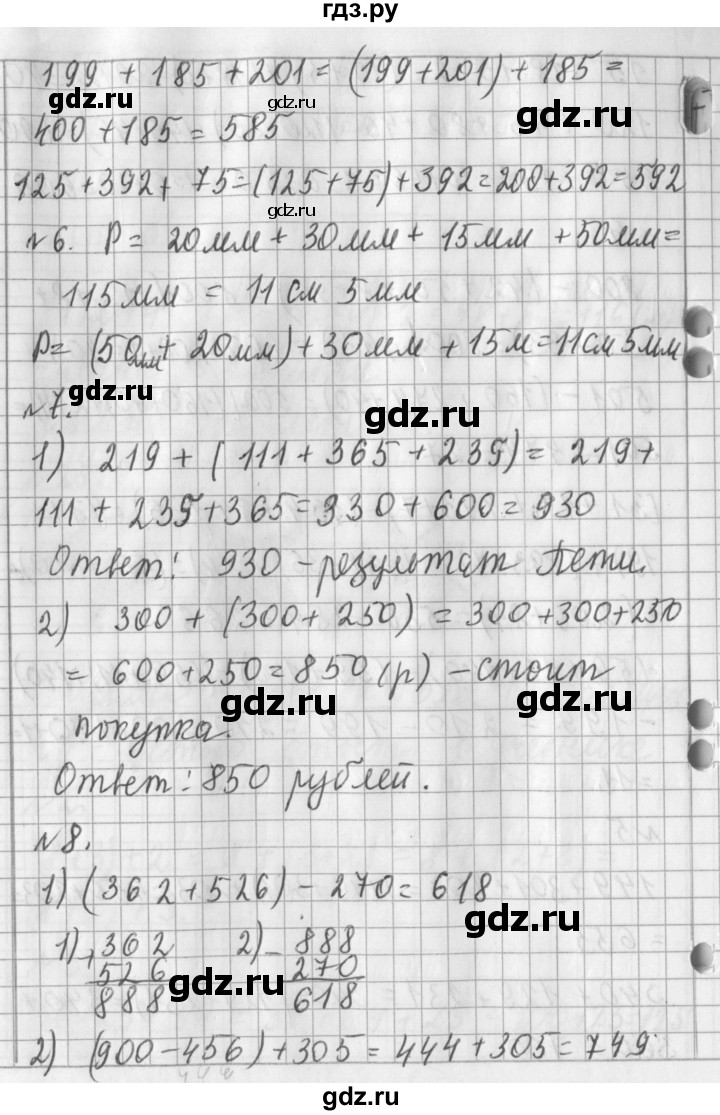 гдз.ру
199 + 185 + 201 = (199 + 201) + 185 =
400 + 185 = 585
125 + 392 + 75 = (125 + 75) + 392 = 200 + 392 = 592
№6. P = 20мм + 30мм + 15мм + 50мм =
115мм = 11 см 5мм
P = (50мм + 20мм) + 30мм + 15м = 11см 5мм
№7.
1) 219 + (111 + 365 + 235) = 219 +
111 + 235 + 365 = 330 + 600 = 930
Ответ: 930 - результат Пети.
2) 300 + (300 + 250) = 300 + 300 + 250
= 600 + 250 = 850 (р) - стоит
покупка.
Ответ: 850 рублей.
№8.
1) (362 + 526) - 270 = 618
1) + 362 2) - 888
526 270
888 618
2) (900 - 456) + 305 = 444 + 305 = 749
gdz.ru
gdz.ru
gdz.ru
gdz.ru
gdz.ru
gdz.ru
gdz.ru
gdz.ru
gdz.ru
gdz.ru
gdz.ru
gdz.ru